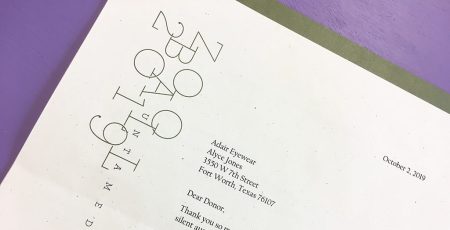 ZOO
BALL
2019
UNTAMED
October 2, 2019
Adair Eyewear
Alyce Jones
3550 W 7th Street
Fort Worth, Texas 76107
Dear Donor,
Thank you so
silent